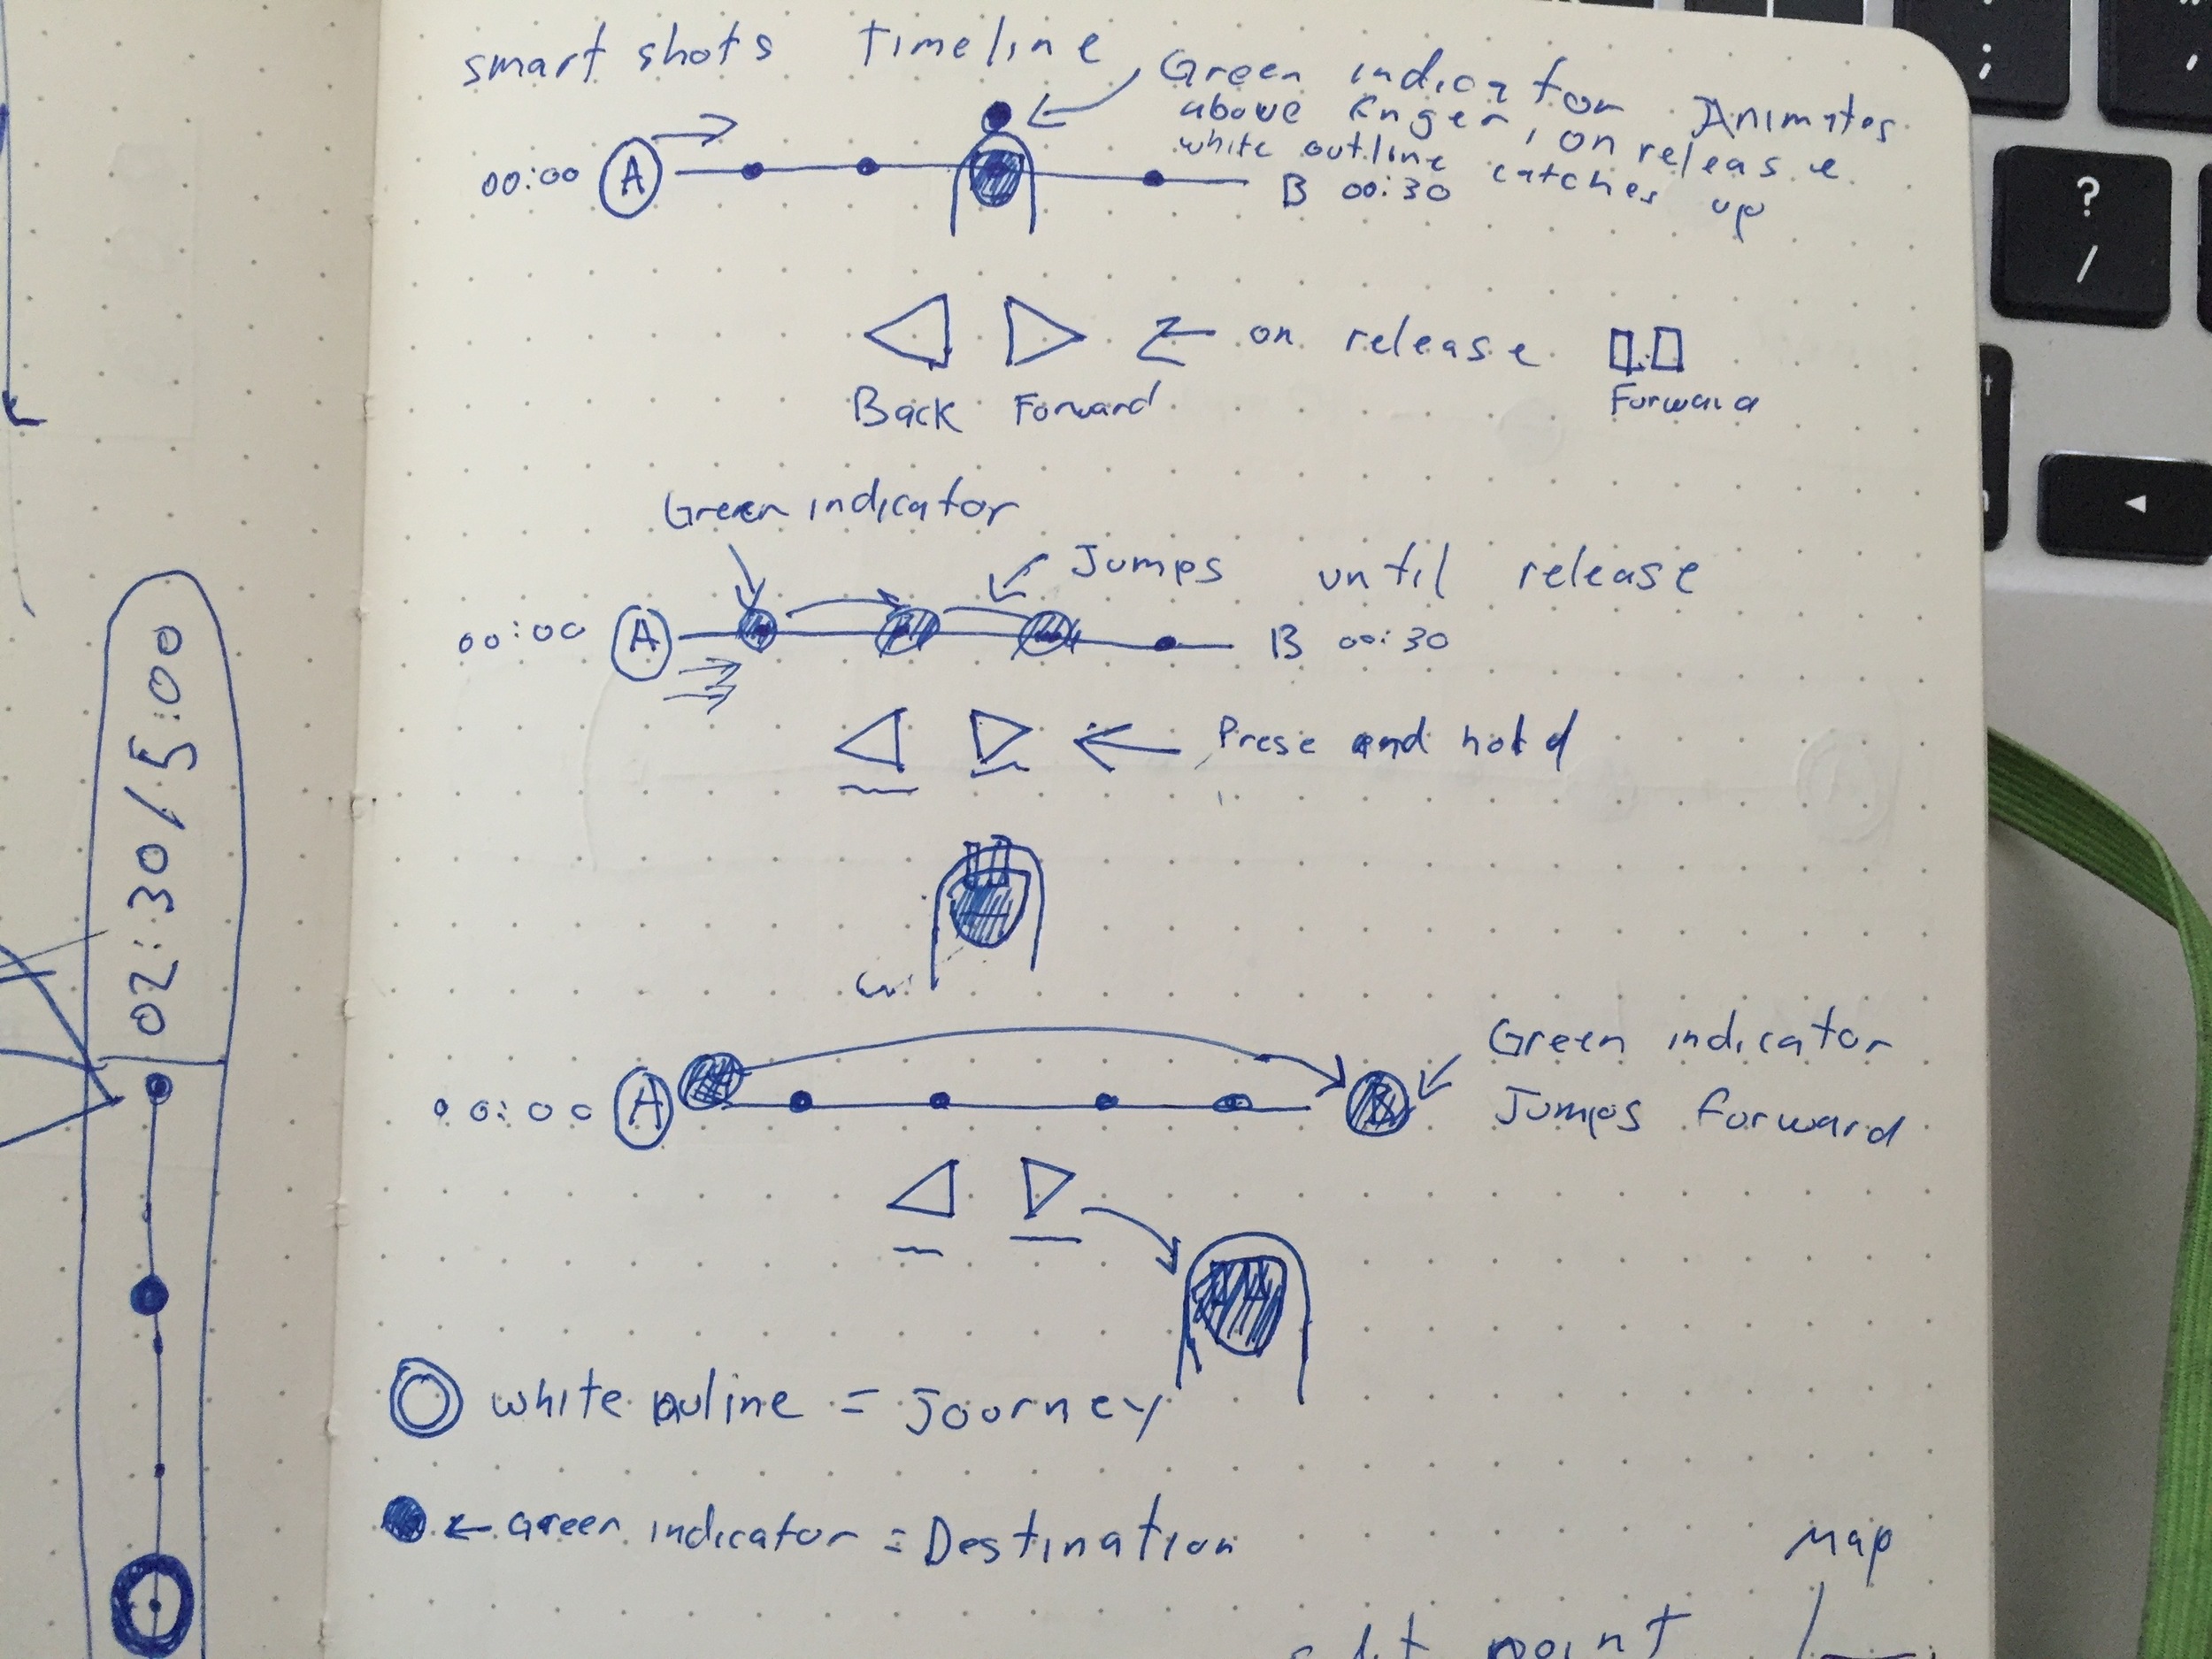 smart shots Timeline
Green indicator Animates
above finger, on release
white outline catches up
00:00 A B 00:30
on release
Back Forward
Forward
Green indicator
Jumps until release
00:00 A B 00:30
Press and hold
Green indicator
Jumps forward
00:00 A B
white ouline = Journey
← Green indicator = Destination
Map
point
02:30/5:00
?
/
;